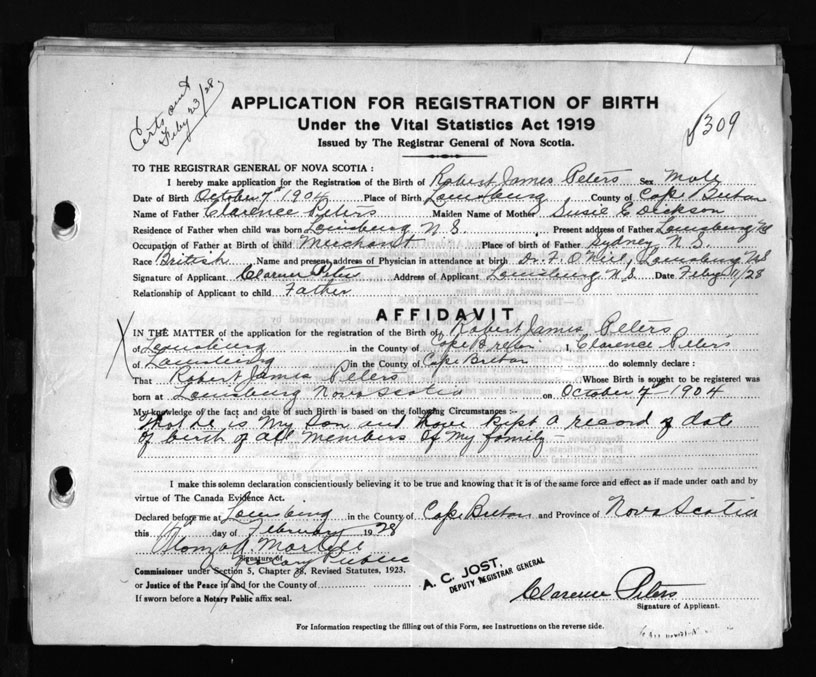 Certs sent
Feby 23/28
8309
APPLICATION FOR REGISTRATION OF BIRTH
Under the Vital Statistics Act 1919
Issued by The Registrar General of Nova Scotia.
TO THE REGISTRAR GENERAL OF NOVA SCOTIA :
I hereby make application for the Registration of the Birth of Robert James Peters Sex Male
Date of Birth October 7th 1904 Place of Birth Louisburg County of Cape Breton
Name of Father Clarence Peters Maiden Name of Mother Susie E Dickson
Residence of Father when child was born Louisburg N.S. Present address of Father Louisburg NS
Occupation of Father at Birth of child Merchant Place of birth of Father Sydney N.S.
Race British Name and present address of Physician in attendance at birth Dr. F. O'Neil, Louisburg NS
Signature of Applicant Clarence Peters Address of Applicant Louisburg, N.S. Date Feby 11/28
Relationship of Applicant to child Father
AFFIDAVIT
IN THE MATTER of the application for the registration of the Birth of Robert James Peters
of Louisburg in the County of Cape Breton I, Clarence Peters
of Louisburg in the County of Cape Breton do solemnly declare :
That Robert James Peters Whose Birth is sought to be registered was
born at Louisburg Nova Scotia on October 7th 1904
My knowledge of the fact and date of such Birth is based on the following Circumstances :-
That he is my son and have kept a record of date
of birth of all members of my family -
I make this solemn declaration conscientiously believing it to be true and knowing that it is of the same force and effect as if made under oath and by
virtue of The Canada Evidence Act.
Declared before me at Louisburg in the County of Cape Breton and Province of Nova Scotia
this day of February 1928
Signature of Notary Public
Commissioner under Section 5, Chapter 38, Revised Statutes, 1923.
or Justice of the Peace in and for the County of
If sworn before a Notary Public affix seal.
A. C. JOST,
DEPUTY REGISTRAR GENERAL
Clarence Peters
Signature of Applicant.
For Information respecting the filling out of this Form, see Instructions on the reverse side.